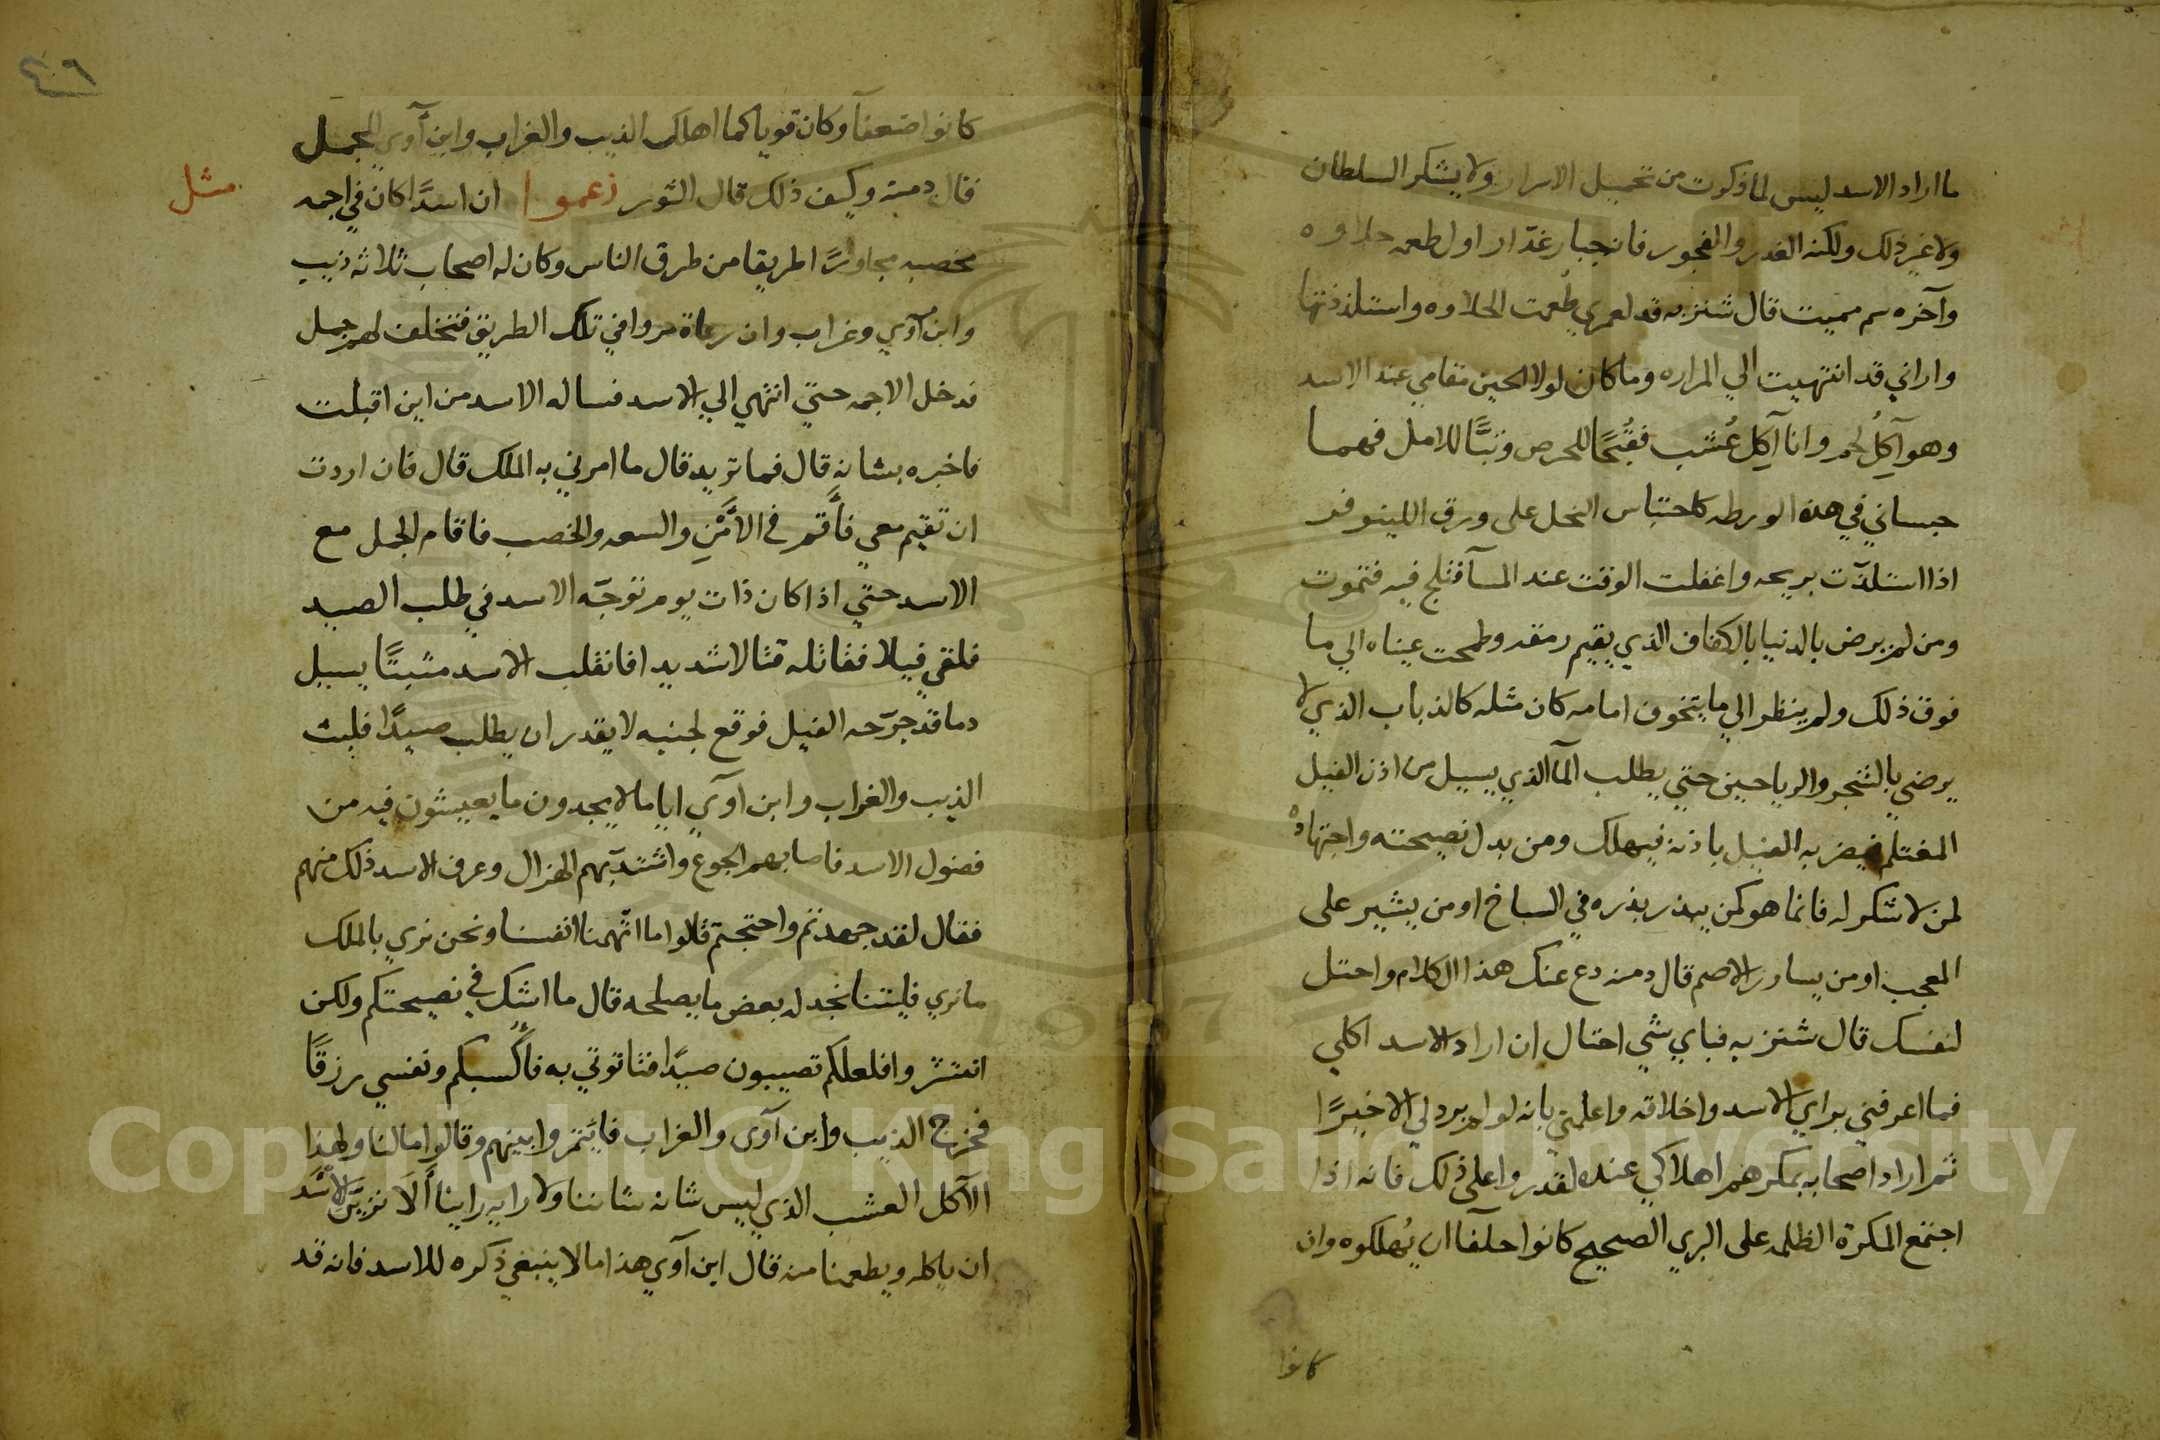 ما اراد الاسد ليس لما ذكرت من تحميل الاسرار ولا يشكر السلطان
ولا غير ذلك ولكنه الغدر والفجور فانه جبار غدّار اول طعمه حلاوه
وآخره سم مميت قال شنزبه قد لعمري طعمت الحلاوه واستلذذتها
واراني قد انتهيت الي المراره وما كان لولا الحين مقامي عند الاسد
وهو آكِلُ لحم وانا آكِل عُشب فقُبحًا للحرص وتبًّا للامل فهما
حبساني في هذه الورطه كاحتباس النحل على ورق اللينوفر
اذا استلذّت بريحه واغفلت الوقت عند المسآ فتلج فيه فتموت
ومن لم يرض بالدنيا بالكفاف الذي يقيم رمقه وطمحت عيناه الي ما
فوق ذلك ولم ينظر الي ما يتخوف امامه كان مثله كالذباب الذي لا
يرضي بالشجر والرياحين حتي يطلب المآ الذي يسيل من اذن الفيل
المغتلم فيضربه الفيل باذنه فيهلك ومن بدل نصيحته واجتهاده
لمن لا شكر له فانما هو كمن يبذر بذره في السباخ او من يشير على
المعجب او من يسارر الاصم قال دمنه دع عنك هذا الكلام واحتل
لنفسك قال شنزبه فباي شي احتال ان اراد الاسد اكلي
فما اعرفني براي الاسد واخلاقه واعلمني بانه لو لم يرد لي الا خيرًا
ثم اراد اصحابه بمكرهم اهلاكي عنده لقدروا على ذلك فانه اذا
اجتمع المكرة الظلمه على البري الصحيح كانوا حلفآ ان يُهلكوه وان
كانوا
٤٦
كانوا ضعفآ وكان قويا كما اهلك الذيب والغراب وابن آوي الجمل
فقال دمنة وكيف ذلك قال الثور زعموا ان اسدًا كان في اجمه
مثل
مخصبه مجاورًا لطريقا من طرق الناس وكان له اصحاب ثلاثه ذيب
وابن آوي وغراب وان رعاة مروا في تلك الطريق فتخلف لهم جمل
فدخل الاجمه حتي انتهي الي الاسد فساله الاسد من اين اقبلت
فاخبره بشانه قال فما تريد قال ما امرني به الملك قال فان اردت
ان تقيم معي فأقم في الأمْنِ والسعه والخصب فاقام الجمل مع
الاسد حتي اذا كان ذات يوم توجّه الاسد في طلب الصيد
فلقي فيلا فقاتله قتالا شديدا فانقلب الاسد مثبتًا يسيل
دما قد جرّحه الفيل فوقع لجنبه لا يقدر ان يطلب صيدًا فلبث
الذيب والغراب وابن آوي اياما لا يجدون ما يعيشون فيه من
فضول الاسد فاصابهم الجوع واشتدّ بهم الهزال وعرف الاسد ذلك منهم
فقال لقد جهدتم واحتجتم قالوا ما اتّهمنا انفسنا ونحن نري بالملك
ما نري فليتنا نجد له بعض ما يصلحه قال ما اشك في نصيحتكم ولكن
انتشروا فلعلكم تصيبون صيدًا فتاتوني به فأكسبكم ونفسي رزقًا
فخرج الذيب وابن آوى والغراب فايتمروا بينهم وقالوا ما لنا ولهذا
الآكل العشب الذي ليس شانه شاننا ولا رايه راينا ألَا نزيّن للأسد
ان ياكله ويطعمنا منه قال ابن آوي هذا ما لا ينبغي ذكره للاسد فانه قد
Copyright © King Saud University